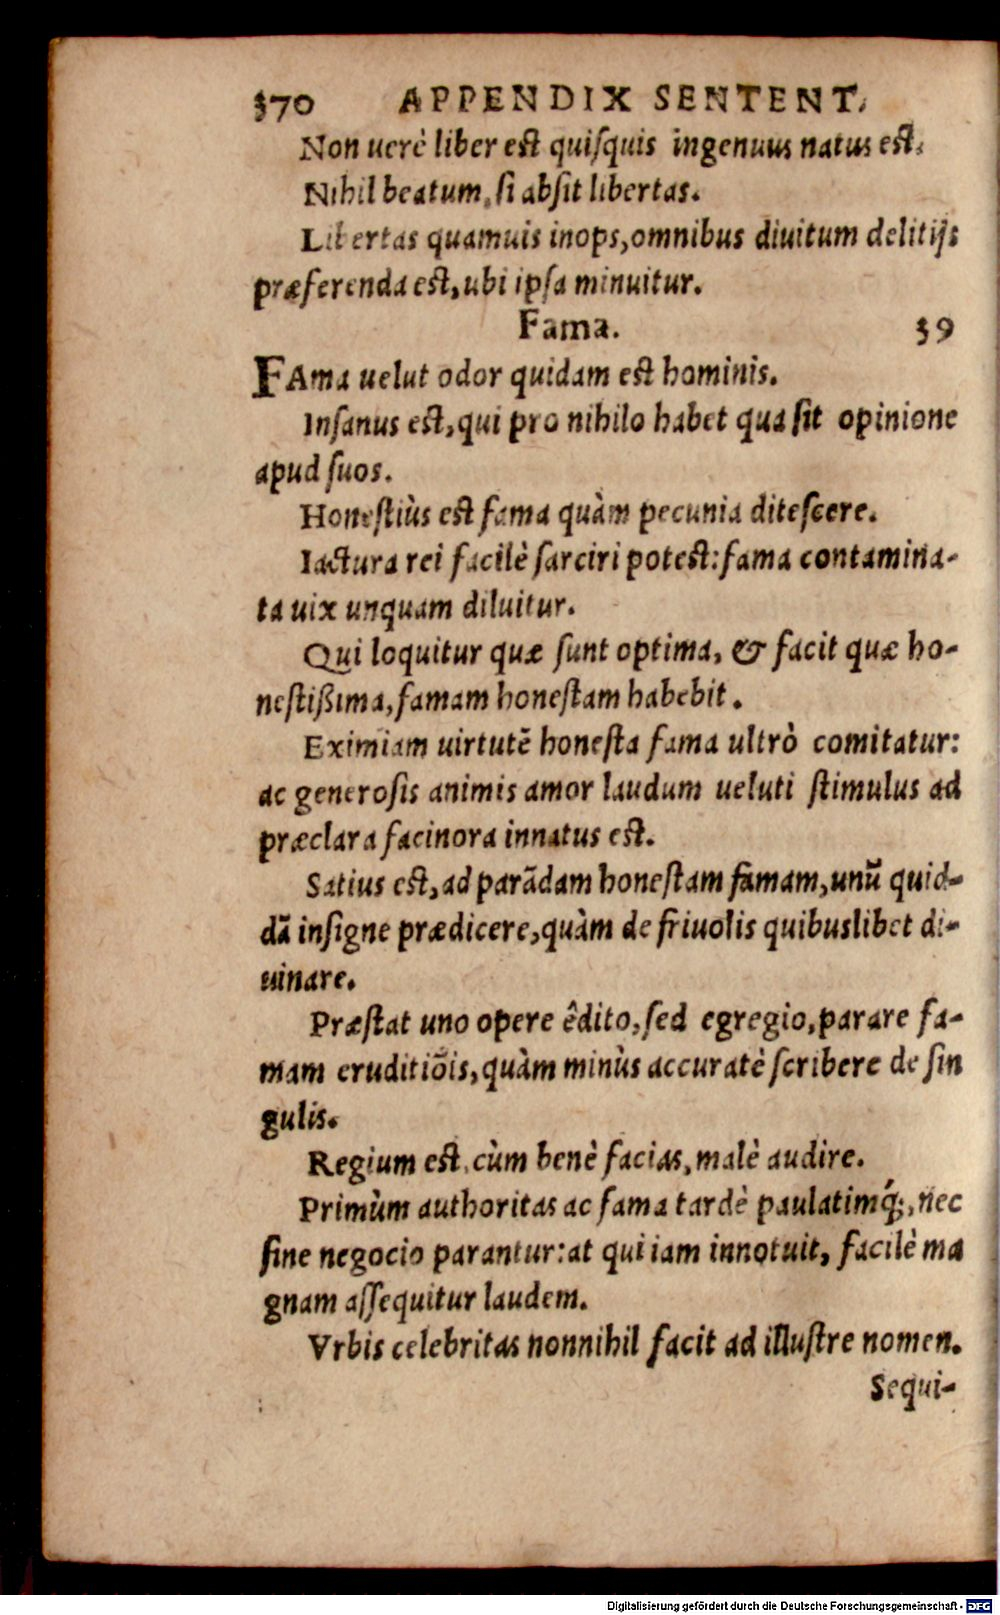 370 APPENDIX SENTENT.
Non uerè liber est quiſquis ingenuus natus est.
Nihil beatum, ſi abſit libertas.
Libertas quamuis inops, omnibus diuitum delitijs
præferenda est, ubi ipſa minuitur.
Fama. 39
FAma uelut odor quidam est hominis.
Inſanus est, qui pro nihilo habet qua ſit opinione
apud ſuos.
Honeſtiùs est fama quàm pecunia diteſcere.
Iactura rei facilè ſarciri potest: fama contamina-
ta uix unquam diluitur.
Qui loquitur quæ ſunt optima, & facit quæ ho-
neſtißima, famam honeſtam habebit.
Eximiam uirtutē honeſta fama ultrò comitatur:
ac generoſis animis amor laudum ueluti ſtimulus ad
præclara facinora innatus est.
Satius est, ad parādam honeſtam famam, unū quid-
dā inſigne prædicere, quàm de friuolis quibuslibet di-
uinare.
Præſtat uno opere êdito, ſed egregio, parare fa-
mam eruditiōis, quàm minùs accuratè ſcribere de ſin
gulis.
Regium est, cùm benè facias, malè audire.
Primùm authoritas ac fama tardè paulatimq́;, nec
ſine negocio parantur: at qui iam innotuit, facilè ma
gnam aſſequitur laudem.
Vrbis celebritas nonnihil facit ad illuſtre nomen.
Sequi-
Digitalisierung gefördert durch die Deutsche Forschungsgemeinschaft - DFG